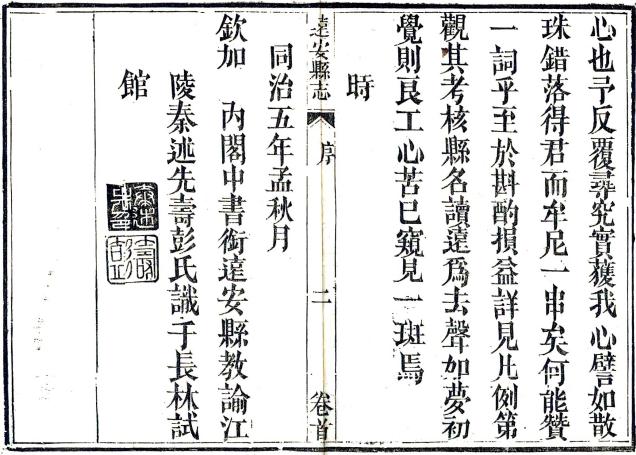 心也予反覆尋究實獲我心譬如散
珠錯落得君而牟尼一串矣何能贊
一詞乎至於斟酌損益詳見凡例第
觀其考核縣名讀遠爲去聲如夢初
覺則良工心苦已窺見一斑焉
時
遠安縣志 序 二 卷首
同治五年孟秋月
欽加 內閣中書銜遠安縣教諭江
陵秦述先壽彭氏識于長林試
館